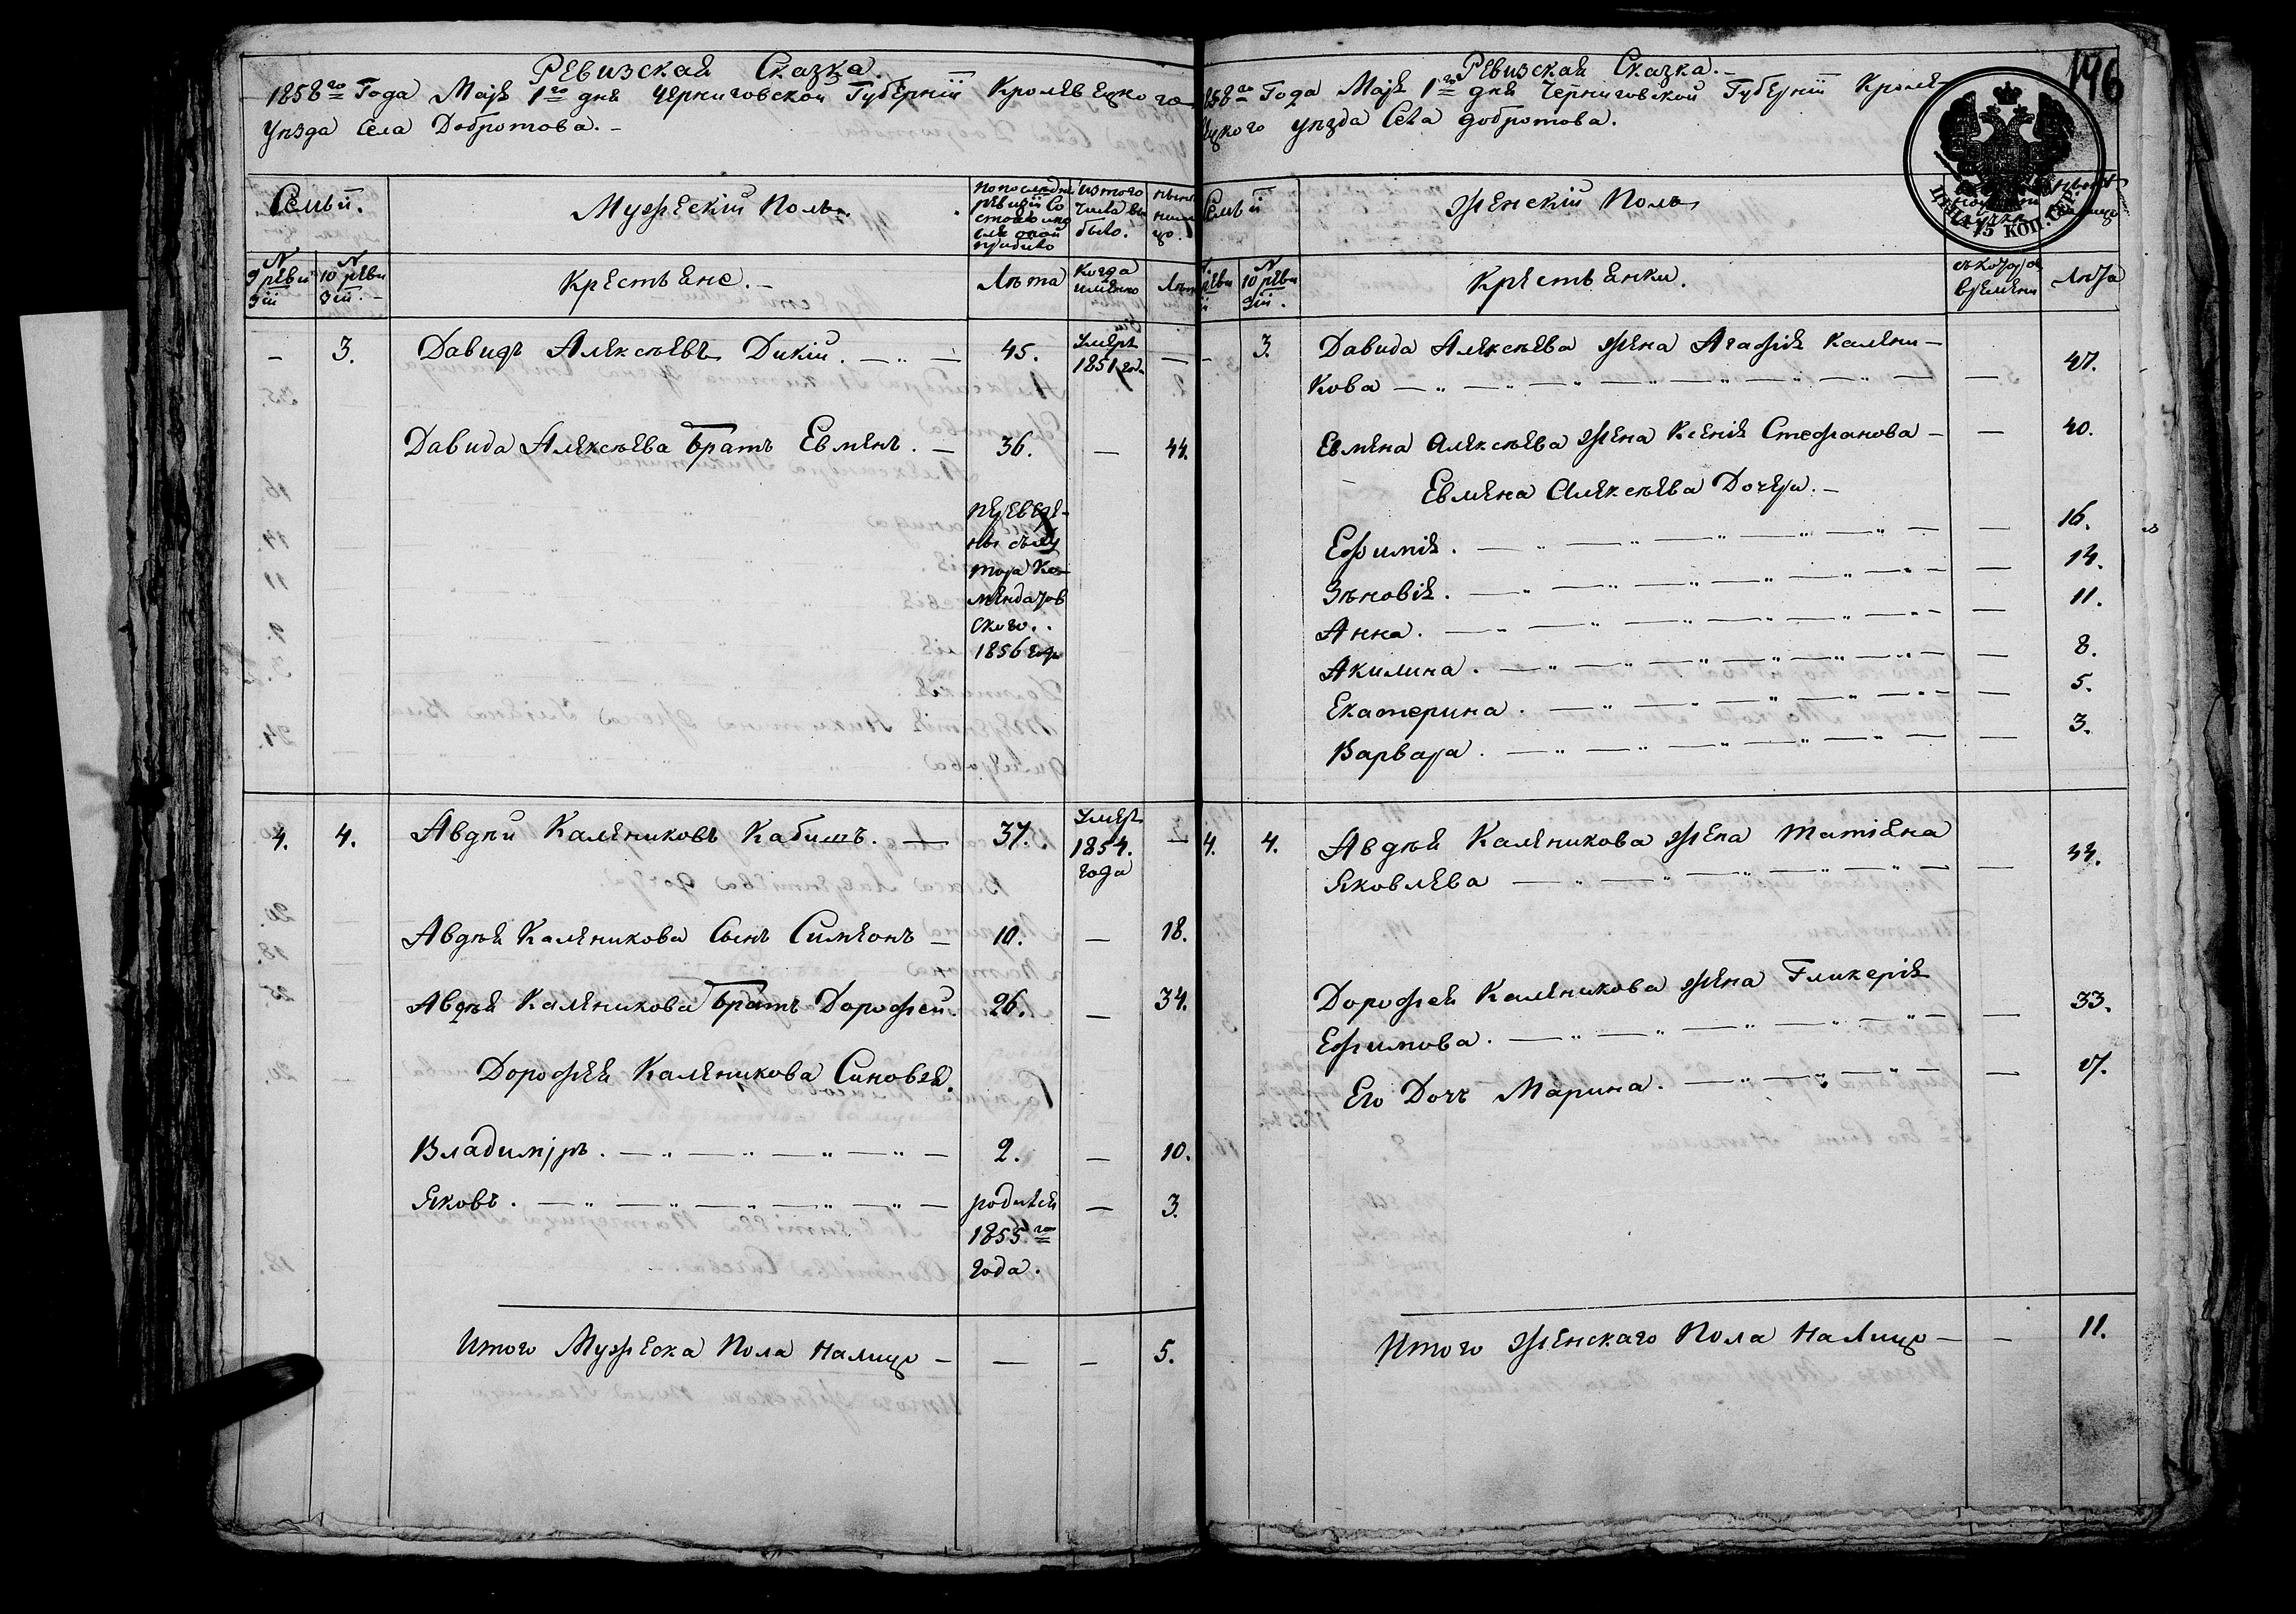 Ревизская Сказка.
1858го Года Маія 1го дня Черниговской Губерніи Кролевецкого
уѣзда Села Добротова.
Семьи.
Мужескій Полъ.
По последней
ревизіи со
стояло или
после оной
прибыло
Изъ того
числа вы
было.
Ныне
нали
цо.
№
9 реви
зіи
№
10 реви
зіи.
Крестьяне.
Лѣта
Когда
именно
Лѣта
3.
Давидъ Алексѣевъ Дикій.
45.
Умеръ
1851 года
Давида Алексѣева братъ Евменъ.
36.
44.
переведе-
ны съ ху
тора Ко-
мендатов
ского.
1856 года
4.
4.
Авдѣй Калениковъ Кабишъ.
37.
Умеръ
1854.
года
Авдѣя Каленикова Сынъ Симеонъ
10.
18.
Авдѣя Каленикова братъ Дорофей.
26.
34.
Дорофея Каленикова Синовья.
Владиміръ.
2.
10.
Яковъ.
родился
1855го
года.
3.
Итого Мужеска Пола налицо
5.
146
Ревизская Сказка.
1858го Года Маія 1го дня Черниговской Губерніи Кроле-
вецкого уѣзда Села Добротова.
ЦѢНА 15 КОП. СЕР.
Семьи
Женскій Полъ
реви
зіи
№
10 реви
зіи.
Крестьянки.
съ котораго
времени
Лѣта
3.
Давида Алексѣева жена Агафія Калени-
кова
47.
Евмена Алексѣева жена Ксенія Стефанова
40.
Евмена Алексѣева Дочери.
Ефимія.
16.
Зѣновія.
14.
Анна.
11.
Акилина.
8.
Екатерина.
5.
Варвара.
3.
4.
4.
Авдѣя Каленикова жена Татіяна
Яковлева
44.
Дорофея Каленикова жена Гликерія
Ефимова.
33.
Его Дочь Марина.
7.
Итого женскаго Пола налицо
11.